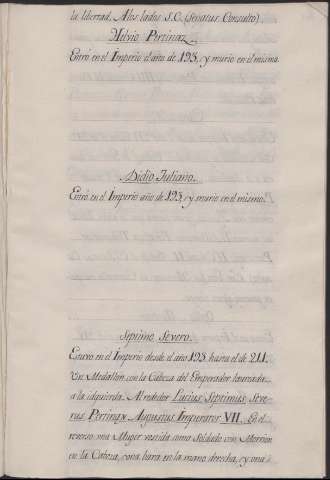 la libertad. A los lados S.C. (Senatus Consulto)
Helvio Pertinaz
Entró en el Imperio el año de 193, y murio en el mismo
Didio Juliano.
Entró en el Imperio año de 193, y murio en el mismo.
Septimo Severo.
Estuvo en el Imperio desde el año 193 hasta el de 211.
Un Medallon con la Cabeza del Emperador laureada
a la izquierda. Al rededor Lucius Septimius Seve-
rus Pertinax Augustus Imperator VII. En el
reverso una Muger vestida como Soldado con Morrion
en la Cabeza, una bara en la mano derecha, y una